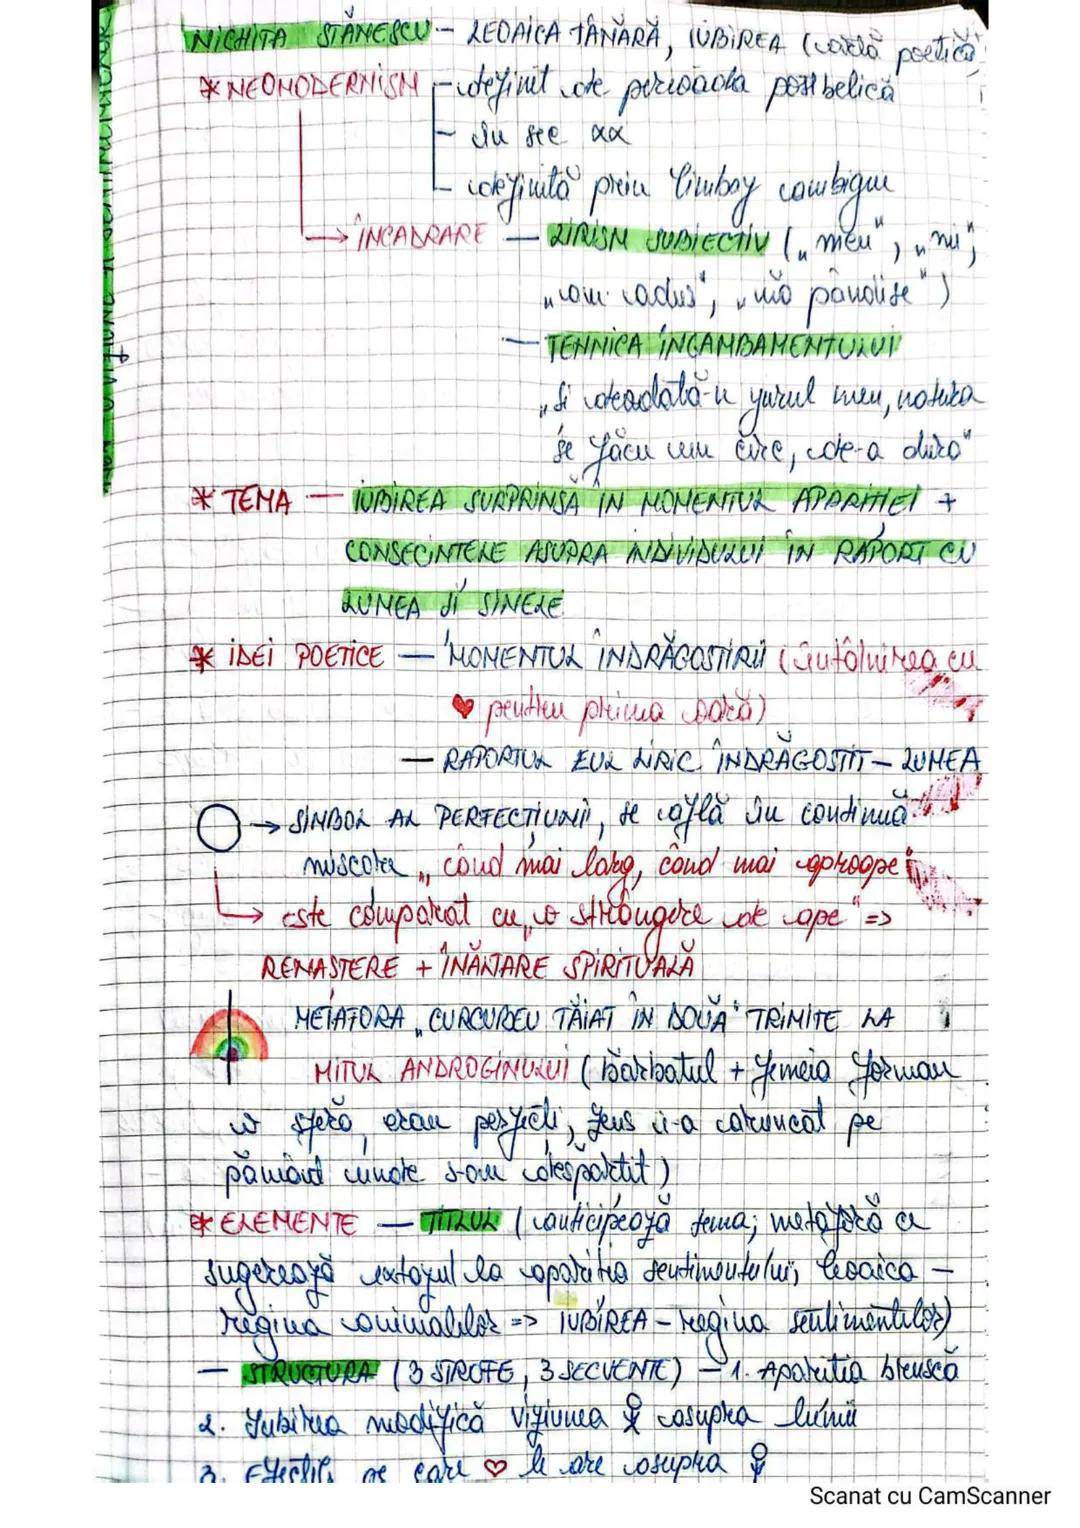 NICHITA STĂNESCU - LEOAICĂ TÂNĂRĂ, IUBIREA (artă poetică)
* NEOMODERNISM - definit de perioada postbelică
- în sec XX
- definită prin limbaj ambiguu
→ ÎNCADRARE - LIRISM SUBIECTIV („meu", „mi",
„am căzut", „mă pândise")
- TEHNICA INGAMBAMENTULUI
„Și deodată-n jurul meu, natura
se făcu un cerc, de-a dura"
* TEMA - IUBIREA SURPRINSĂ ÎN MOMENTUL APARIȚIEI +
CONSECINȚELE ASUPRA INDIVIDULUI ÎN RAPORT CU
LUMEA ȘI SINELE
* IDEI POETICE - MOMENTUL ÎNDRĂGOSTIRII (întâlnirea cu
♥ pentru prima oară)
- RAPORTUL EUL LIRIC ÎNDRĂGOSTIT - LUMEA
→ SIMBOL AL PERFECȚIUNII, se află în continuă
mișcare „când mai larg, când mai aproape"
→ este comparat cu „o strângere de ape" =>
RENAȘTERE + ÎNĂLȚARE SPIRITUALĂ
METAFORA „CURCUBEU TĂIAT ÎN DOUĂ" TRIMITE LA
MITUL ANDROGINULUI (Bărbatul + femeia formau
o sferă, erau perfecți, Zeus i-a aruncat pe
pământ unde s-au despărțit)
* ELEMENTE - TITLUL (anticipează tema; metaforă ce
sugerează extazul la apariția sentimentului; leoaica -
regina animalelor => IUBIREA - regina sentimentelor)
- STRUCTURA (3 STROFE, 3 SECVENȚE) - 1. Apariția bruscă
2. Iubirea modifică viziunea asupra lumii
3. Efectele pe care ♥ le are asupra
Scanat cu CamScanner